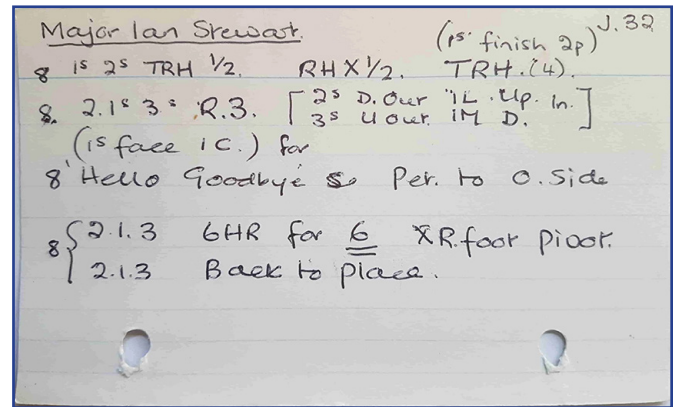 Major Ian Stewart. (1s' finish 2p) J.32
8 1s 2s TRH 1/2. RHX1/2. TRH.(4).
8. 2.1s 3s R.3. [2s D.Out "1L.Up. In.]
3s U Out. 1M D.
(1s face 1C.) for
8 'Hello Goodbye' S Per. to O.Side
8 {2.1.3 6HR for 6 R.foot pivot.
2.1.3 Back to place.